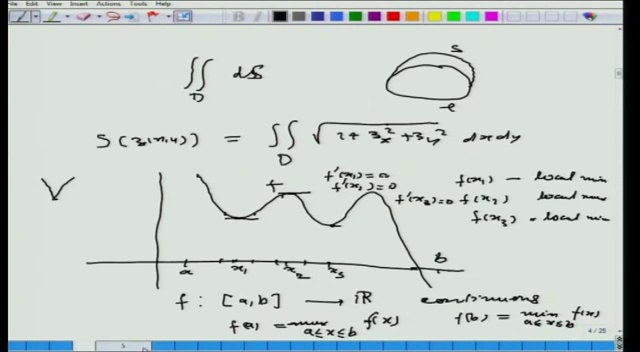 File Edit View Insert Actions Tools Help
∬ dS
D
S
S(z(x,y)) = ∬ √(1+z_x²+z_y²) dxdy
D
f
f'(x_1)=0
f'(x_2)=0
f'(x_3)=0
f(x_1) — local min
f(x_2) local max
f(x_3) – local min
a x_1 x_2 x_3 b
f : [a,b] → ℝ continuous
f(a) = max f(x) f(b) = min f(x)
a≤x≤b a≤x≤b
4 / 25
5